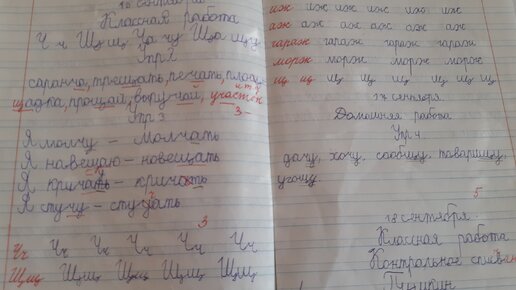 16 сентября
Классная работа
Ч ч Щ щ Ча чу Ща щу
Упр 2
саранча, трещать, печать, площадь
щадпа, прощай, выручай, участок
3-
Упр 3
Я молчу – молчать
Я навещаю – новещать
Я кричать – кричать
Я стучу – стучать
3
Чч Чч Чч Чч Чч Чч
Щщ Щщ Щщ Щщ Щщ
иж иж иж иж иж иж
аж аж аж аж аж аж
гараж гараж гараж гараж
морж морж морж морж
щ щ щ щ щ щ щ щ
17 сентября.
Домашняя работа
Упр 4
дачу, хочу, сообщу, таварищу,
угощу.
5
18 сентября.
Классная работа
Контральное списывание
Пушкин